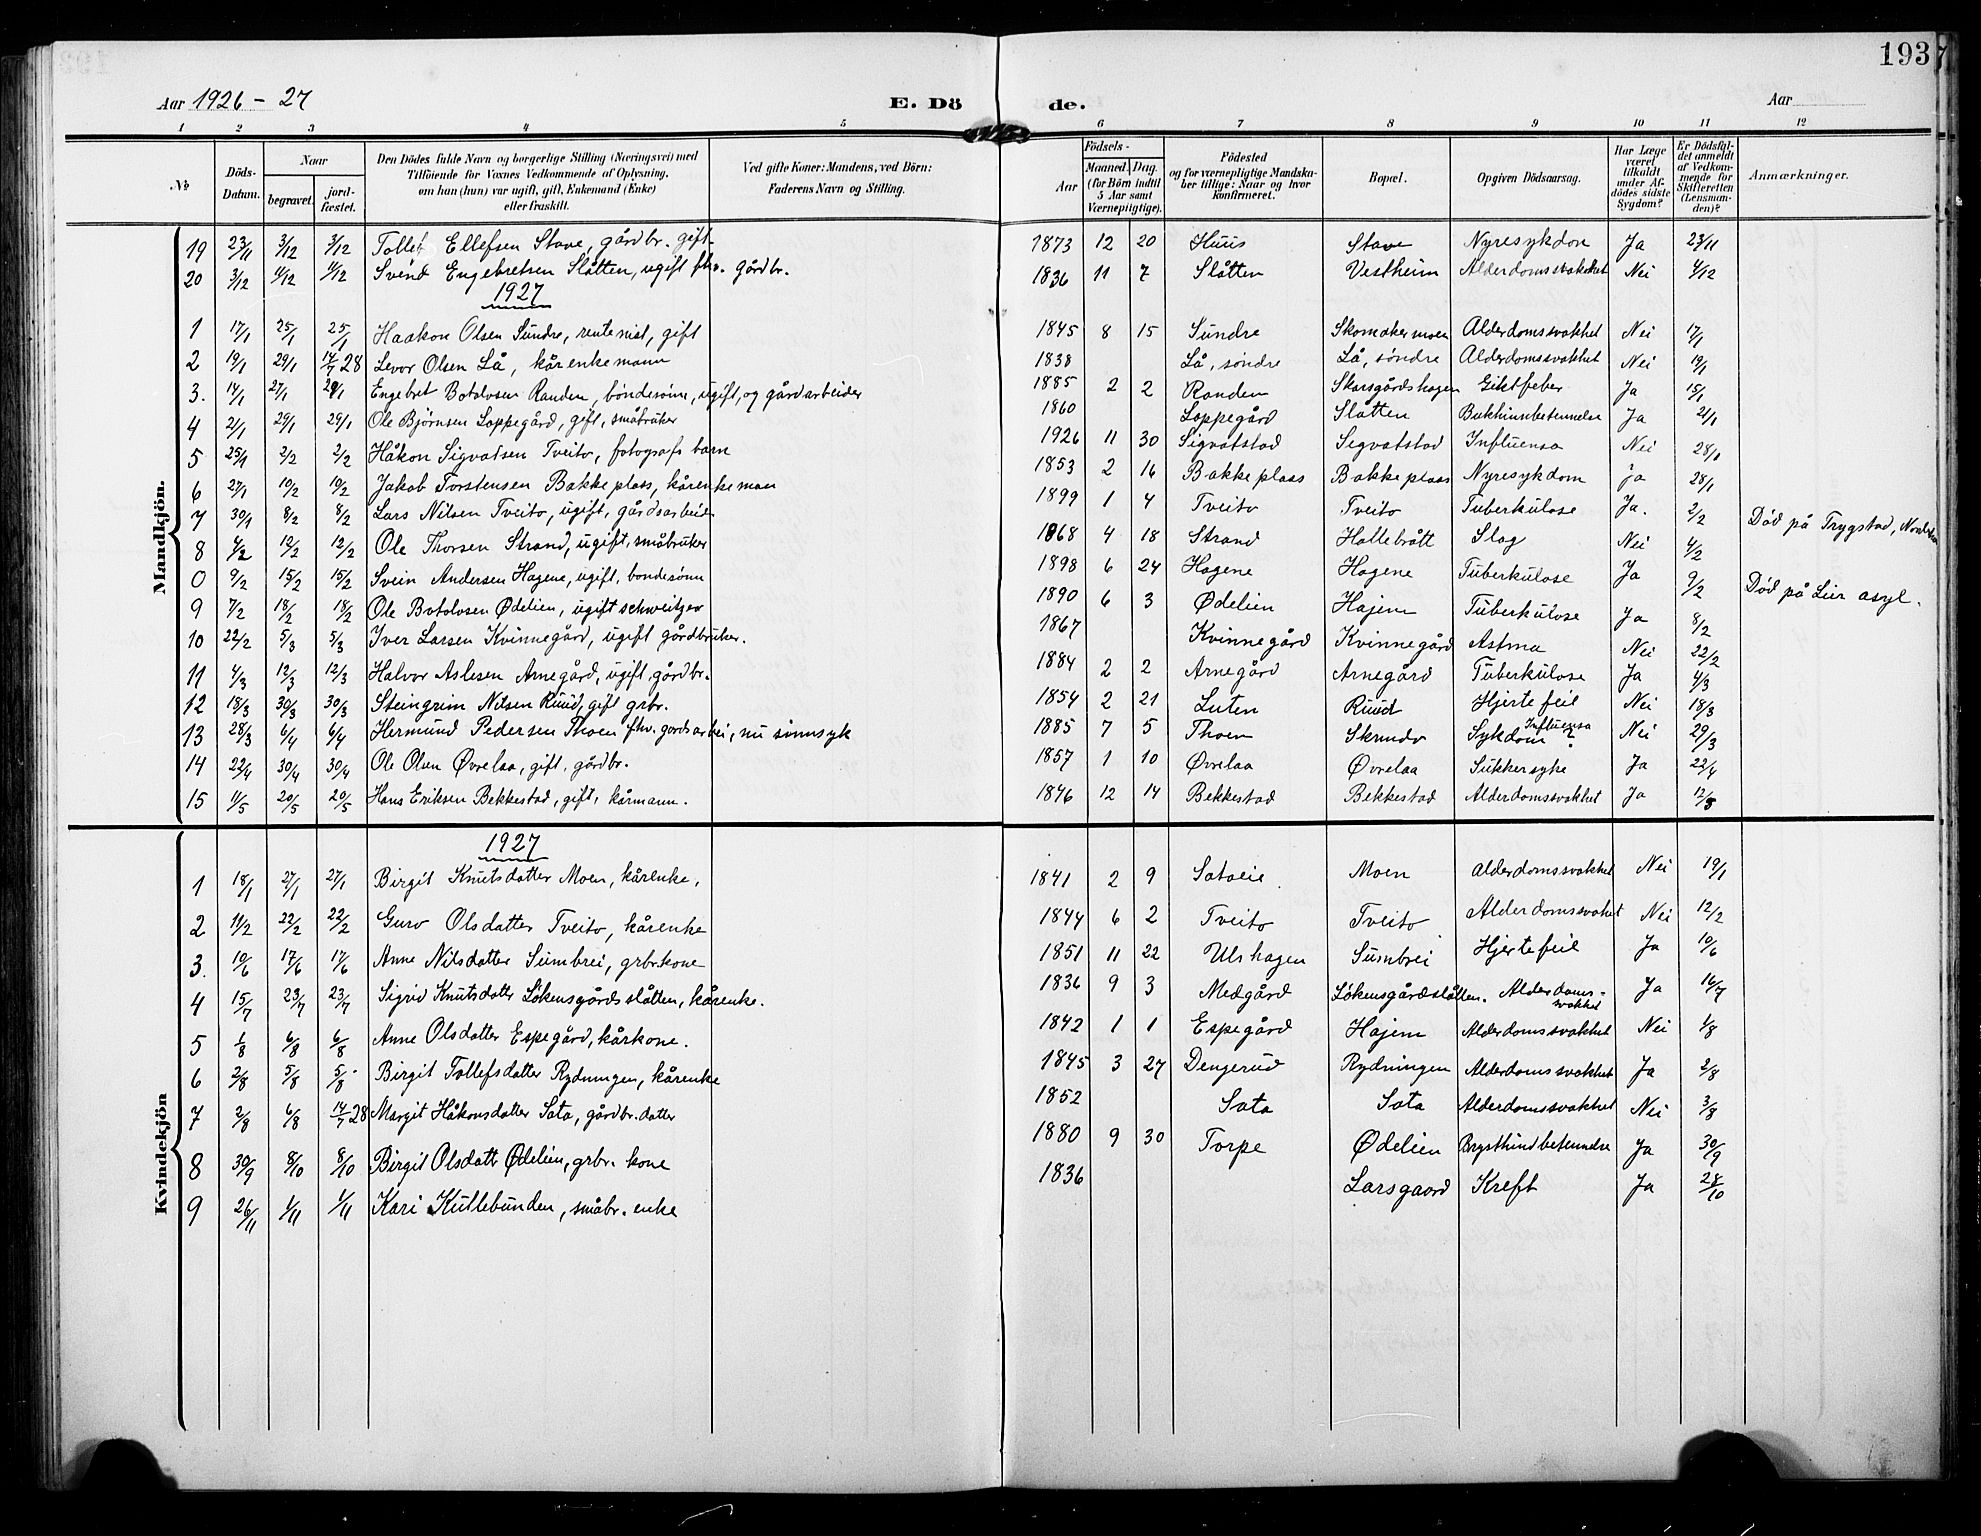 193
Aar 1926 - 27 E. Dö de. Aar
1 2 3 4 5 6 7 8 9 10 11 12
№ Döds-Datum. Naar begravet. jord-fæstet. Den Dödes fulde Navn og borgerlige Stilling (Næringsvei) med Tilföiende for Voxnes Vedkommende af Oplysning, om han (hun) var ugift, gift, Enkemand (Enke) eller fraskilt. Ved gifte Koner: Mandens, ved Börn: Faderens Navn og Stilling. Födsels- Aar Maaned. Dag. (for Börn indtil 5 Aar samt Værnepligtige). Födested og for værnepligtige Mandskaber tillige: Naar og hvor konfirmeret. Bopæl. Opgiven Dödsaarsag. Har Læge været tilkaldt under Afdödes sidste Sygdom? Er Dödsfaldet anmeldt af Vedkommende for Skifteretten (Lensmanden)? Anmærkninger.
Mandkjön.
19 23/11 3/12 3/12 Tollef Ellefsen Stave, gårdbr. gift 1873 12 20 Huus Stave Nyresykdon Ja 23/11
20 3/12 4/12 4/12 Svend Engebretsen Slåtten, ugift fhv. gårdbr. 1836 11 7 Slåtten Vestheim Alderdomssvakhet Nei 4/12
1927
1 17/1 25/1 25/1 Haakon Olsen Sundre, rentenist, gift 1845 8 15 Sundre Skomakermoen Alderdomssvakhet Nei 17/1
2 19/1 29/1 14/7 28 Levor Olsen Lå, kårenkemann 1838 Lå, søndre Lå, søndre Alderdomssvakhet Nei 19/1
3. 14/1 27/1 Engebret Botolvsen Randen, bondesønn, ugift, og gårdarbeider 1885 2 2 Randen Skarsgårdshagen Giktfeber Ja 15/1
4 21/1 29/1 29/1 Ole Bjørnsen Loppegård, gift, småbruker 1860 Loppegård Slåtten Bukhinnbetennelse Ja 21/1
5 25/1 2/2 2/2 Håkon Sigvatsen Tveito, fotografs barn 1926 11 30 Sigvatstad Sigvatstad Influensa Nei 28/1
6 27/1 10/2 10/2 Jakob Torstensen Bakkeplass, kårenkeman 1853 2 16 Bakkeplass Bakkeplass Nyresykdom ja 28/1
7 30/1 8/2 8/2 Lars Nilsen Tveito, ugift, gårdsarbeid 1899 1 4 Tveito Tveito Tuberkulose Ja. 2/2 Død på Trygstad,
8 4/2 12/2 12/2 Ole Thorsen Strand, ugift, småbruker 1868 4 18 Strand Hallebrått Slag Nei 4/2
0 9/2 15/2 15/2 Svein Andersen Hagene, ugift, bondesønn 1898 6 24 Hagene Hagene Tuberkulose Ja 9/2 Død på Lier asyl.
9 7/2 18/2 18/2 Ole Botolvsen Ødelien, ugift schweitzer 1890 6 3 Ødelien Hajem Tuberkulose Ja 8/2
10 22/2 5/3 5/3 Iver Larsen Kvinnegård, ugift gårdbruker. 1867 Kvinnegård Kvinnegård Astma Nei 22/2
11 4/3 12/3 12/3 Halvor Aslesen Arnegård, ugift, gårdbr. 1884 2 2 Arnegård Arnegård Tuberkulose Ja 4/3
12 18/3 30/3 30/3 Steingrim Nilsen Ruud, gift grbr. 1854 2 21 Luten Ruud Hjertefeil Nei 18/3
13 28/3 6/4 6/4 Hermund Pedersen Thoen fhv. gordsarbei, nu sinnsyk 1885 7 5 Thoen Skrindo Sykdom Influensa? Nei 29/3
14 22/4 30/4 30/4 Ole Olsen Øvrelaa, gift, gårdbr. 1857 1 10 Øvrelaa Øvrelaa Sukkersyke Ja 22/4
15 11/5 20/5 20/5 Hans Eriksen Bekkestad, gift, kårmann. 1846 12 14 Bekkestad Bekkestad Alderdomssvakhet Ja 12/5
Kvindekjön
1927
1 18/1 27/1 27/1 Birgit Knutsdatter Moen, kårenke, 1841 2 9 Sataeie Moen Alderdomssvakhet Nei 19/1
2 11/2 22/2 22/2 Guro Olsdatter Tveito, kårenke 1844 6 2 Tveito Tveito Alderdomssvakhet Nei 12/2
3. 10/6 17/6 17/6 Anne Nilsdatter Sumbrei, grbr.kone 1851 11 22 Ulshagen Sumbrei Hjertefeil Ja 10/6
4 15/7 23/7 23/7 Sigrid Knutsdatter Løkensgårdsslåtten, kårenke. 1836 9 3 Medgård Løkensgårdslåtten. Alderdoms-svakhet Ja 16/7
5 1/8 6/8 6/8 Anne Olsdatter Espegård, kårkone. 1842 1 1 Espegård Hajem Alderdomssvakhet Nei 1/8
6 2/8 5/8 5/8 Birgit Tollefsdatter Rydningen, kårenke 1845 3 27 Dengerud Rydningen Alderdomssvakhet Ja 2/8
7 2/8 6/8 14/7 28 Margit Håkonsdatter Sata, gårdbr.datter 1852 Sata Sata Alderdomssvakhet Nei 3/8
8 30/9 8/10 8/10 Birgit Olsdatt Ødelien, grbr. kone 1880 9 30 Torpe Ødelien Brysthindbetennelse Ja 30/9
9 26/11 1/11 1/11 Kari Kullebunden, småbr. enke 1836 Larsgaard Kreft Ja 28/10